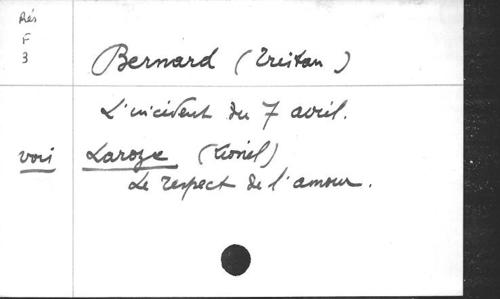 Rés
F
3
Bernard (Tristan)
L'incident du 7 avril.
voir Laroze (Lionel)
Le respect de l'amour.